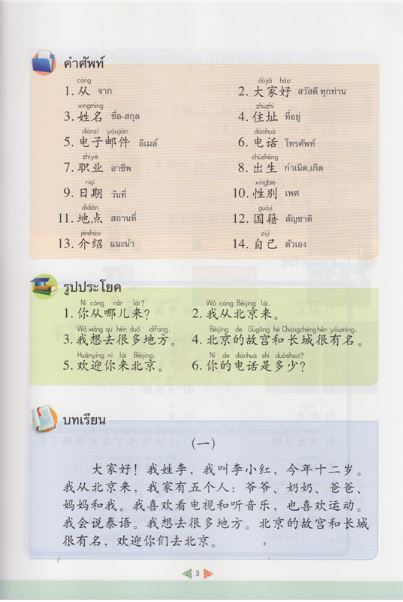 คำศัพท์
cóng dàjiā hǎo
1. 从 จาก 2. 大家好 สวัสดี ทุกท่าน
xìngmíng zhùzhǐ
3. 姓名 ชื่อ-สกุล 4. 住址 ที่อยู่
diànzǐ yóujiàn diànhuà
5. 电子邮件 อีเมล์ 6. 电话 โทรศัพท์
zhíyè chūshēng
7. 职业 อาชีพ 8. 出生 กำเนิด,เกิด
rìqī xìngbié
9. 日期 วันที่ 10. 性别 เพศ
dìdiǎn guójí
11. 地点 สถานที่ 12. 国籍 สัญชาติ
jièshào zìjǐ
13. 介绍 แนะนำ 14. 自己 ตัวเอง
รูปประโยค
Nǐ cóng nǎr lái? Wǒ cóng Běijīng lái.
1. 你从哪儿来? 2. 我从北京来。
Wǒ xiǎng qù hěn duō dìfang. Běijīng de Gùgōng hé Chángchéng hěn yǒumíng.
3. 我想去很多地方。 4. 北京的故宫和长城很有名。
Huānyíng nǐ lái Běijīng. Nǐ de diànhuà shì duōshao?
5. 欢迎你来北京。 6. 你的电话是多少?
บทเรียน
(一)
大家好! 我姓李, 我叫李小红, 今年十二岁。
我从北京来, 我家有五个人: 爷爷、奶奶、爸爸、
妈妈和我。我喜欢看电视和听音乐, 也喜欢运动。
我会说泰语。我想去很多地方。北京的故宫和长城
很有名, 欢迎你们去北京。
3